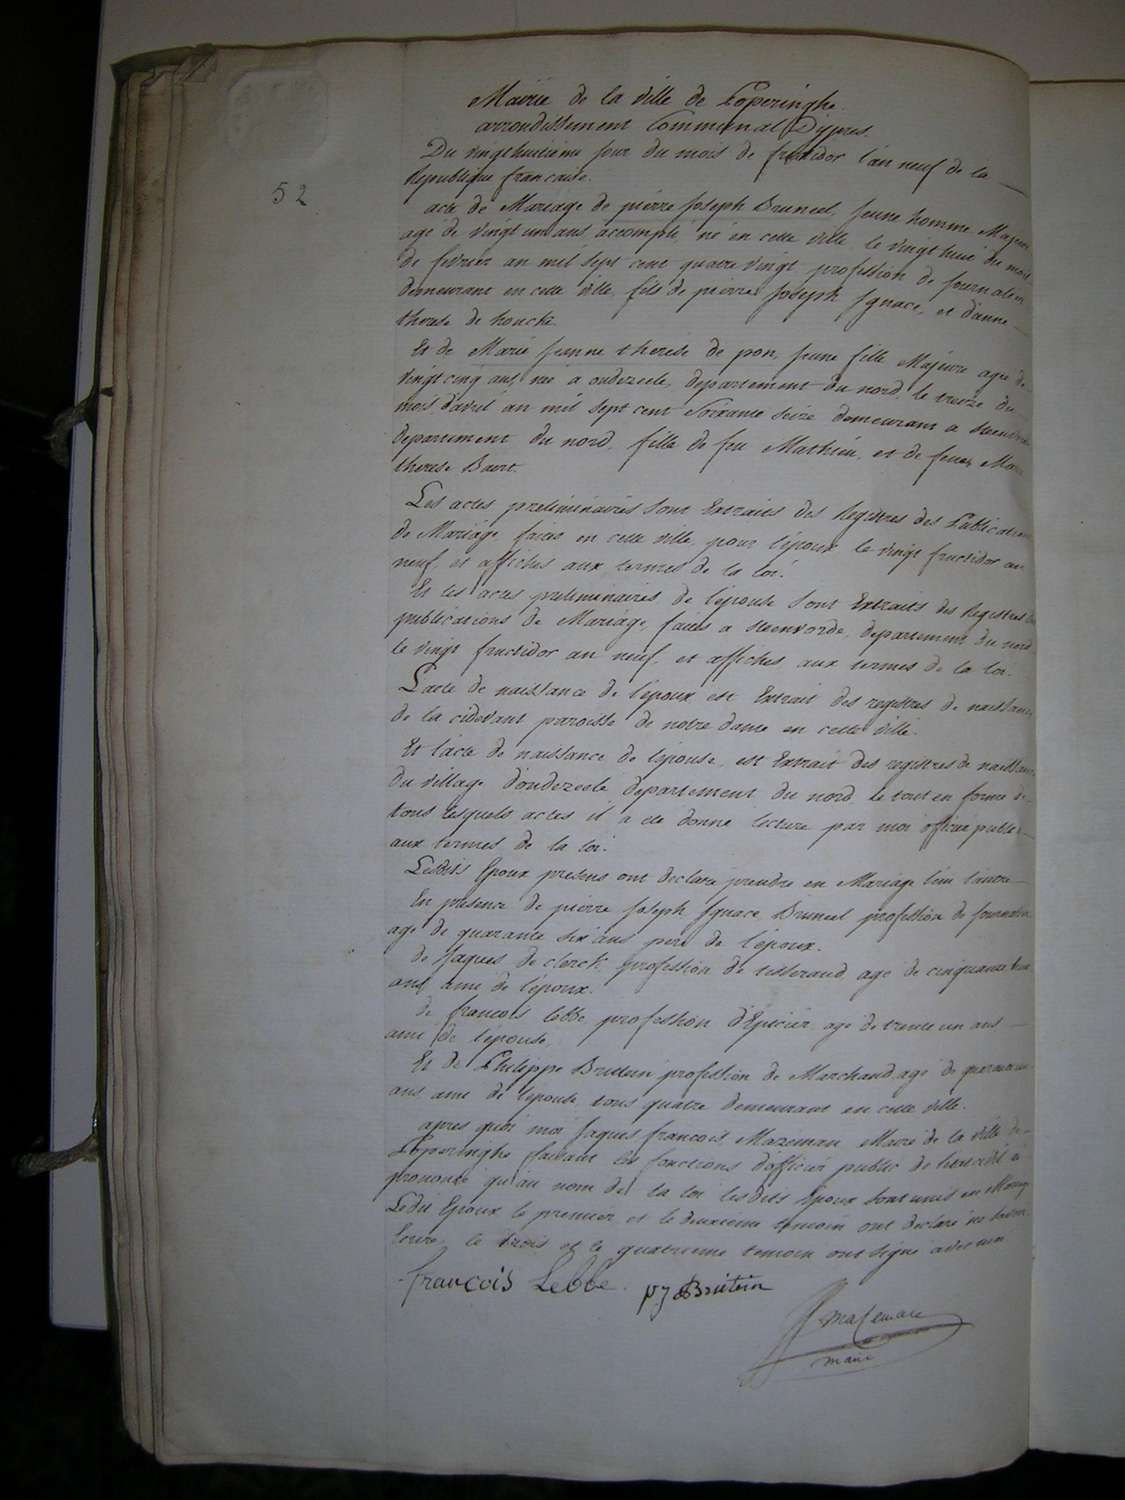 Mairie de la ville de Poperinghe
arrondissement Communal D'ypres
52
Du vingthuitieme jour du mois de fructidor l'an neuf de la
Republique francaise.
acte de Mariage de pierre Joseph Bruneel, jeune homme Majeur
agé de vingt un ans accompli, né en cette ville, le vingt huit du mois
de fevrier an mil sept cent quatre vingt profession de journalier
demeurant en cette ville, fils de pierre Joseph Ignace, et d'anne
therese de houck.
Et de Marie jeanne therese de pon, jeune fille Majeure agé de
vingtcinq ans, née a oudezeele, departement du nord, le treize du
mois d'avril an mil sept cent Soixante seize demeurant a
departement du nord, fille de feu Mathieu, et de feue Marie
therese Baert.
Les actes preliminaires sont Extraits des Registres des Publications
de Mariage, faites en cette ville, pour l'époux le vingt fructidor an
neuf, et affiches aux termes de la loi.
Et les actes preliminaires de l'épouse sont Extraits des Registres des
publications de Mariage, faites a steenvorde, departement du nord
le vingt fructidor an neuf, et affiches aux termes de la loi.
L'acte de naissance de l'époux est Extrait des registres de naissance
de la cidevant paroisse de notre dame en cette ville.
Et l'acte de naissance de l'épouse, est Extrait des registres de naissance
du village d'oudezeele departement du nord, le tout en forme de
tous lesquels actes il a été donné lecture par moi officier public
aux termes de la loi.
Lesdits Epoux presens ont declare prendre en Mariage l'un l'autre
En presence de pierre Joseph Ignace Bruneel profession de journalier
agé de quarante six ans pere de l'époux.
de Jaques de clerck profession de tisserand, agé de cinquante
ans ami de l'époux.
de francois lebbe profession d'Epicier agé de trente un ans
ami de l'épouse,
Et de Philippe Brutein profession de Marchand agé de quarante
ans, ami de l'épouse, tous quatre demeurant en cette ville.
apres quoi moi Jaques francois Mazeman Maire de la ville de
Poperinghe faisant les fonctions d'officier public de l'etat civil ai
prononcé qu'au nom de la loi lesdits Epoux sont unis en Mariage
Ledit Epoux le premier et le deuxieme temoin ont declaré ne savoir
Ecrire, le trois et le quatrieme temoin ont signé avec moi
françois Lebbe. pj Brutein
mazeman
maire